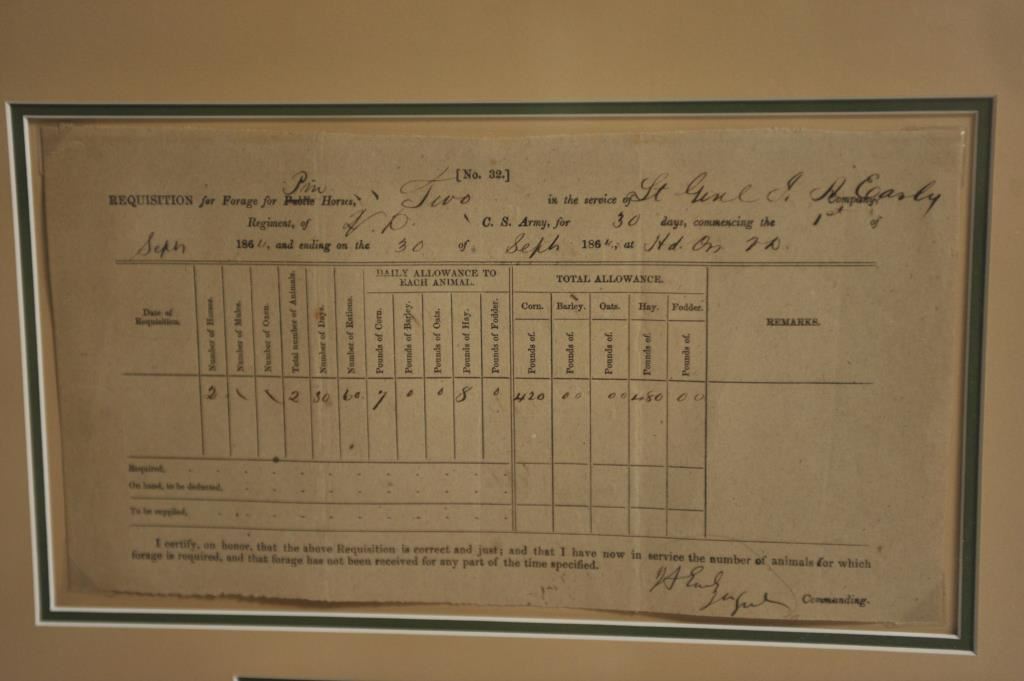 [No. 32.]
REQUISITION for Forage for Public Horses, Two in the service of Lt Genl J. A. Early Company,
Regiment, of V. D. C. S. Army, for 30 days, commencing the 1st of
Sept 1864, and ending on the 30 of Sept 1864, at Hd. Qrs V D.
DAILY ALLOWANCE TO EACH ANIMAL. TOTAL ALLOWANCE.
Date of Requisition. Number of Horses. Number of Mules. Number of Oxen. Total number of Animals. Number of Days. Number of Rations. Pounds of Corn. Pounds of Barley. Pounds of Oats. Pounds of Hay. Pounds of Fodder. Corn. Barley. Oats. Hay. Fodder. REMARKS.
Pounds of. Pounds of. Pounds of. Pounds of. Pounds of.
2 \ \ 2 30 60 7 0 0 8 0 420 00 00 480 00
Required,
On hand, to be deducted,
To be supplied,
I certify, on honor, that the above Requisition is correct and just; and that I have now in service the number of animals for which
forage is required, and that forage has not been received for any part of the time specified.
J A Early
Commanding.